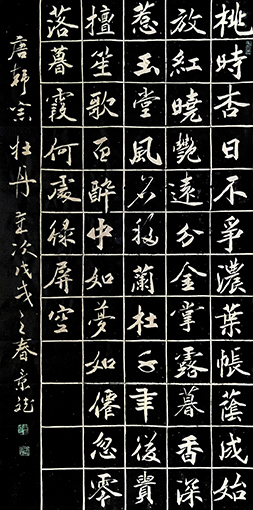 桃時杏日不爭濃葉帳蔭成始
放紅曉艷遠分金掌露暮香深
惹玉堂風名移蘭杜千年後貴
擅笙歌百醉中如夢如僊忽零
落暮霞何處綠屏空
唐韓琮牡丹歲次戊戌之春景